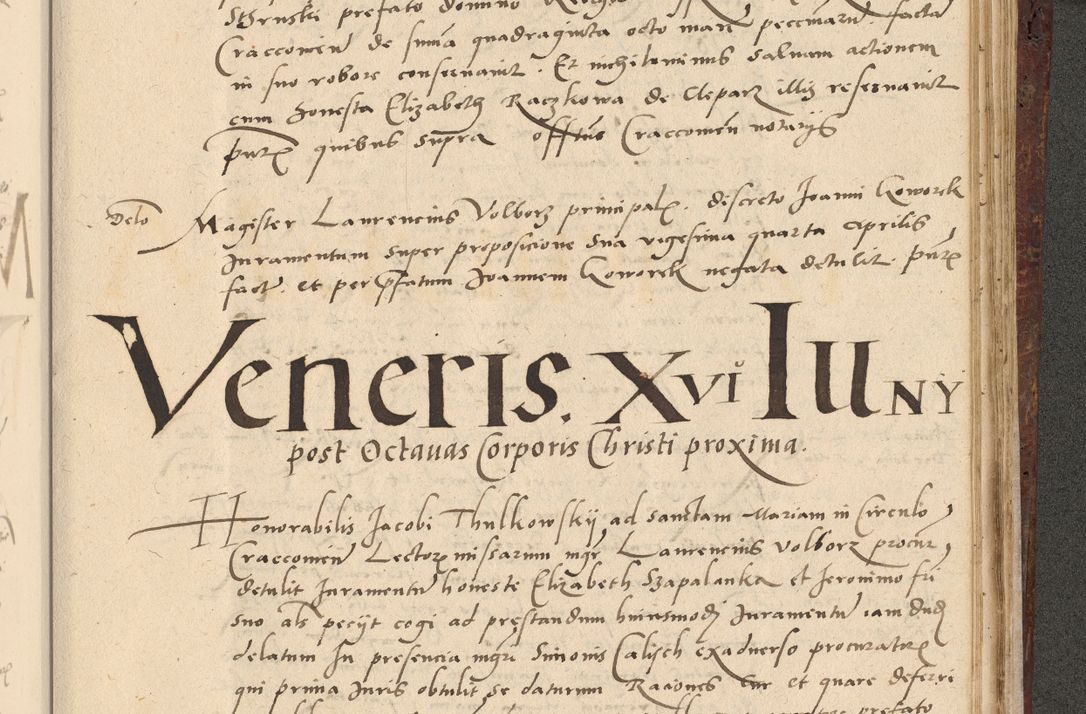 prefato domino
Craccovien de sum̄a quadraginta octo marc pecc̄niar̄ facta
in suo robore conservavit. Et nichilominus salvam actionem
cum honesta Elizabeth Raczkowa de Clepar illis reservavit
pn̄t quibus supra offitus Craccovien̄ notarijs
Delo
Magister Laurencius Volborz principal. discreto Joanni Koworek
Juramentum super proposicione sua vigesima quarta Aprilis
fact. et per p̄fatum Joannem Koworek negata detulit. pn̄t
Veneris. XVI Iuny
post Octavas Corporis Christi proxima.
Honorabilis Jacobi Thulkowskij ad sanctam Mariam in Circulo
Craccovien Lector missarum mgr Laurencius Volborz procur
detulit Juramentu honeste Elizabeth Szapalanka et Jeronimo fri
suo als pecijt cogi ad prestandum huiusmodi Juramentu iam dud
delatum In presencia mgri Simonis Calisch exadverso procurator
qui prima Juris obtulit se daturum Raciones cur et quare deferri
prefato